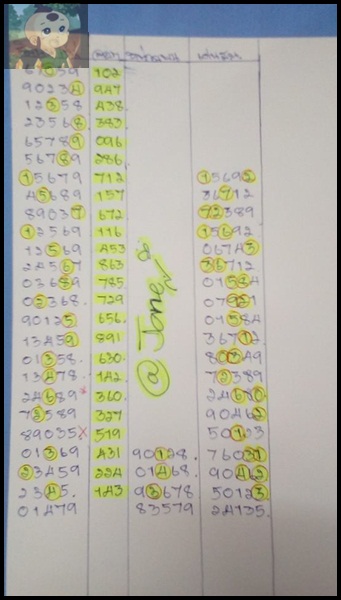 67059 102
90234 947
12358 438
23568 383
65789 096
56789 286
15679 712 15692
45689 157 36712
89037 672 72389
12569 116 15692
12569 453 06743
24567 863 36712
03689 785 01584
05368. 729
90125 656. 01584
13459 891 36712
01358. 630.
13478. 142 72389
24689 × 360.
75589 327 90462
89035 × 519 50123
01369 431 90128. 76031
23459 224 01468. 90462
2345. 143 93678 50123
01479 83579 24135.
@Jone